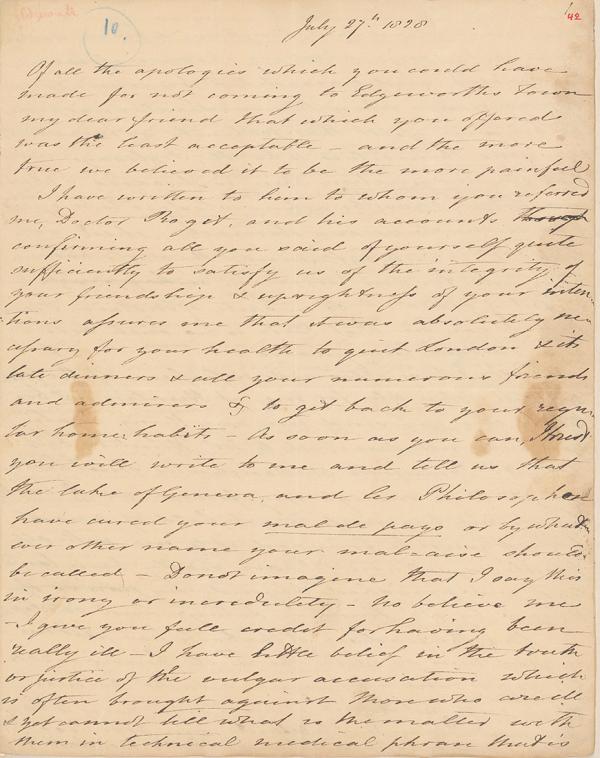 10.
42
July 27th 1828
Of all the apologies which you could have
made for not coming to Edgeworths Town
my dear friend that which you offered
was the least acceptable - and the more
true we believed it to be the more painful
I have written to him to whom you referred
me, Doctor Roget, and his accounts though
confirming all you said of yourself quite
sufficiently to satisfy us of the integrity of
your friendship & uprightness of your inten-
tions assures me that it was absolutely ne-
cessary for your health to quit London & its
late dinners & all your numerous friends
and admirers & to get back to your regu-
lar home habits - As soon as you can, I trust
you will write to me and tell us that
the lake of Geneva and les Philosophes
have cured your mal de pays or by what-
ever other name your malaise should
be called - Do not imagine that I say this
in irony or incredulity - No believe me
- I give you full credit for having been
really ill - I have little belief in the truth
or justice of the vulgar accusation which
is often brought against those who are ill
& yet cannot tell what is the matter with
them in technical medical phrase that is